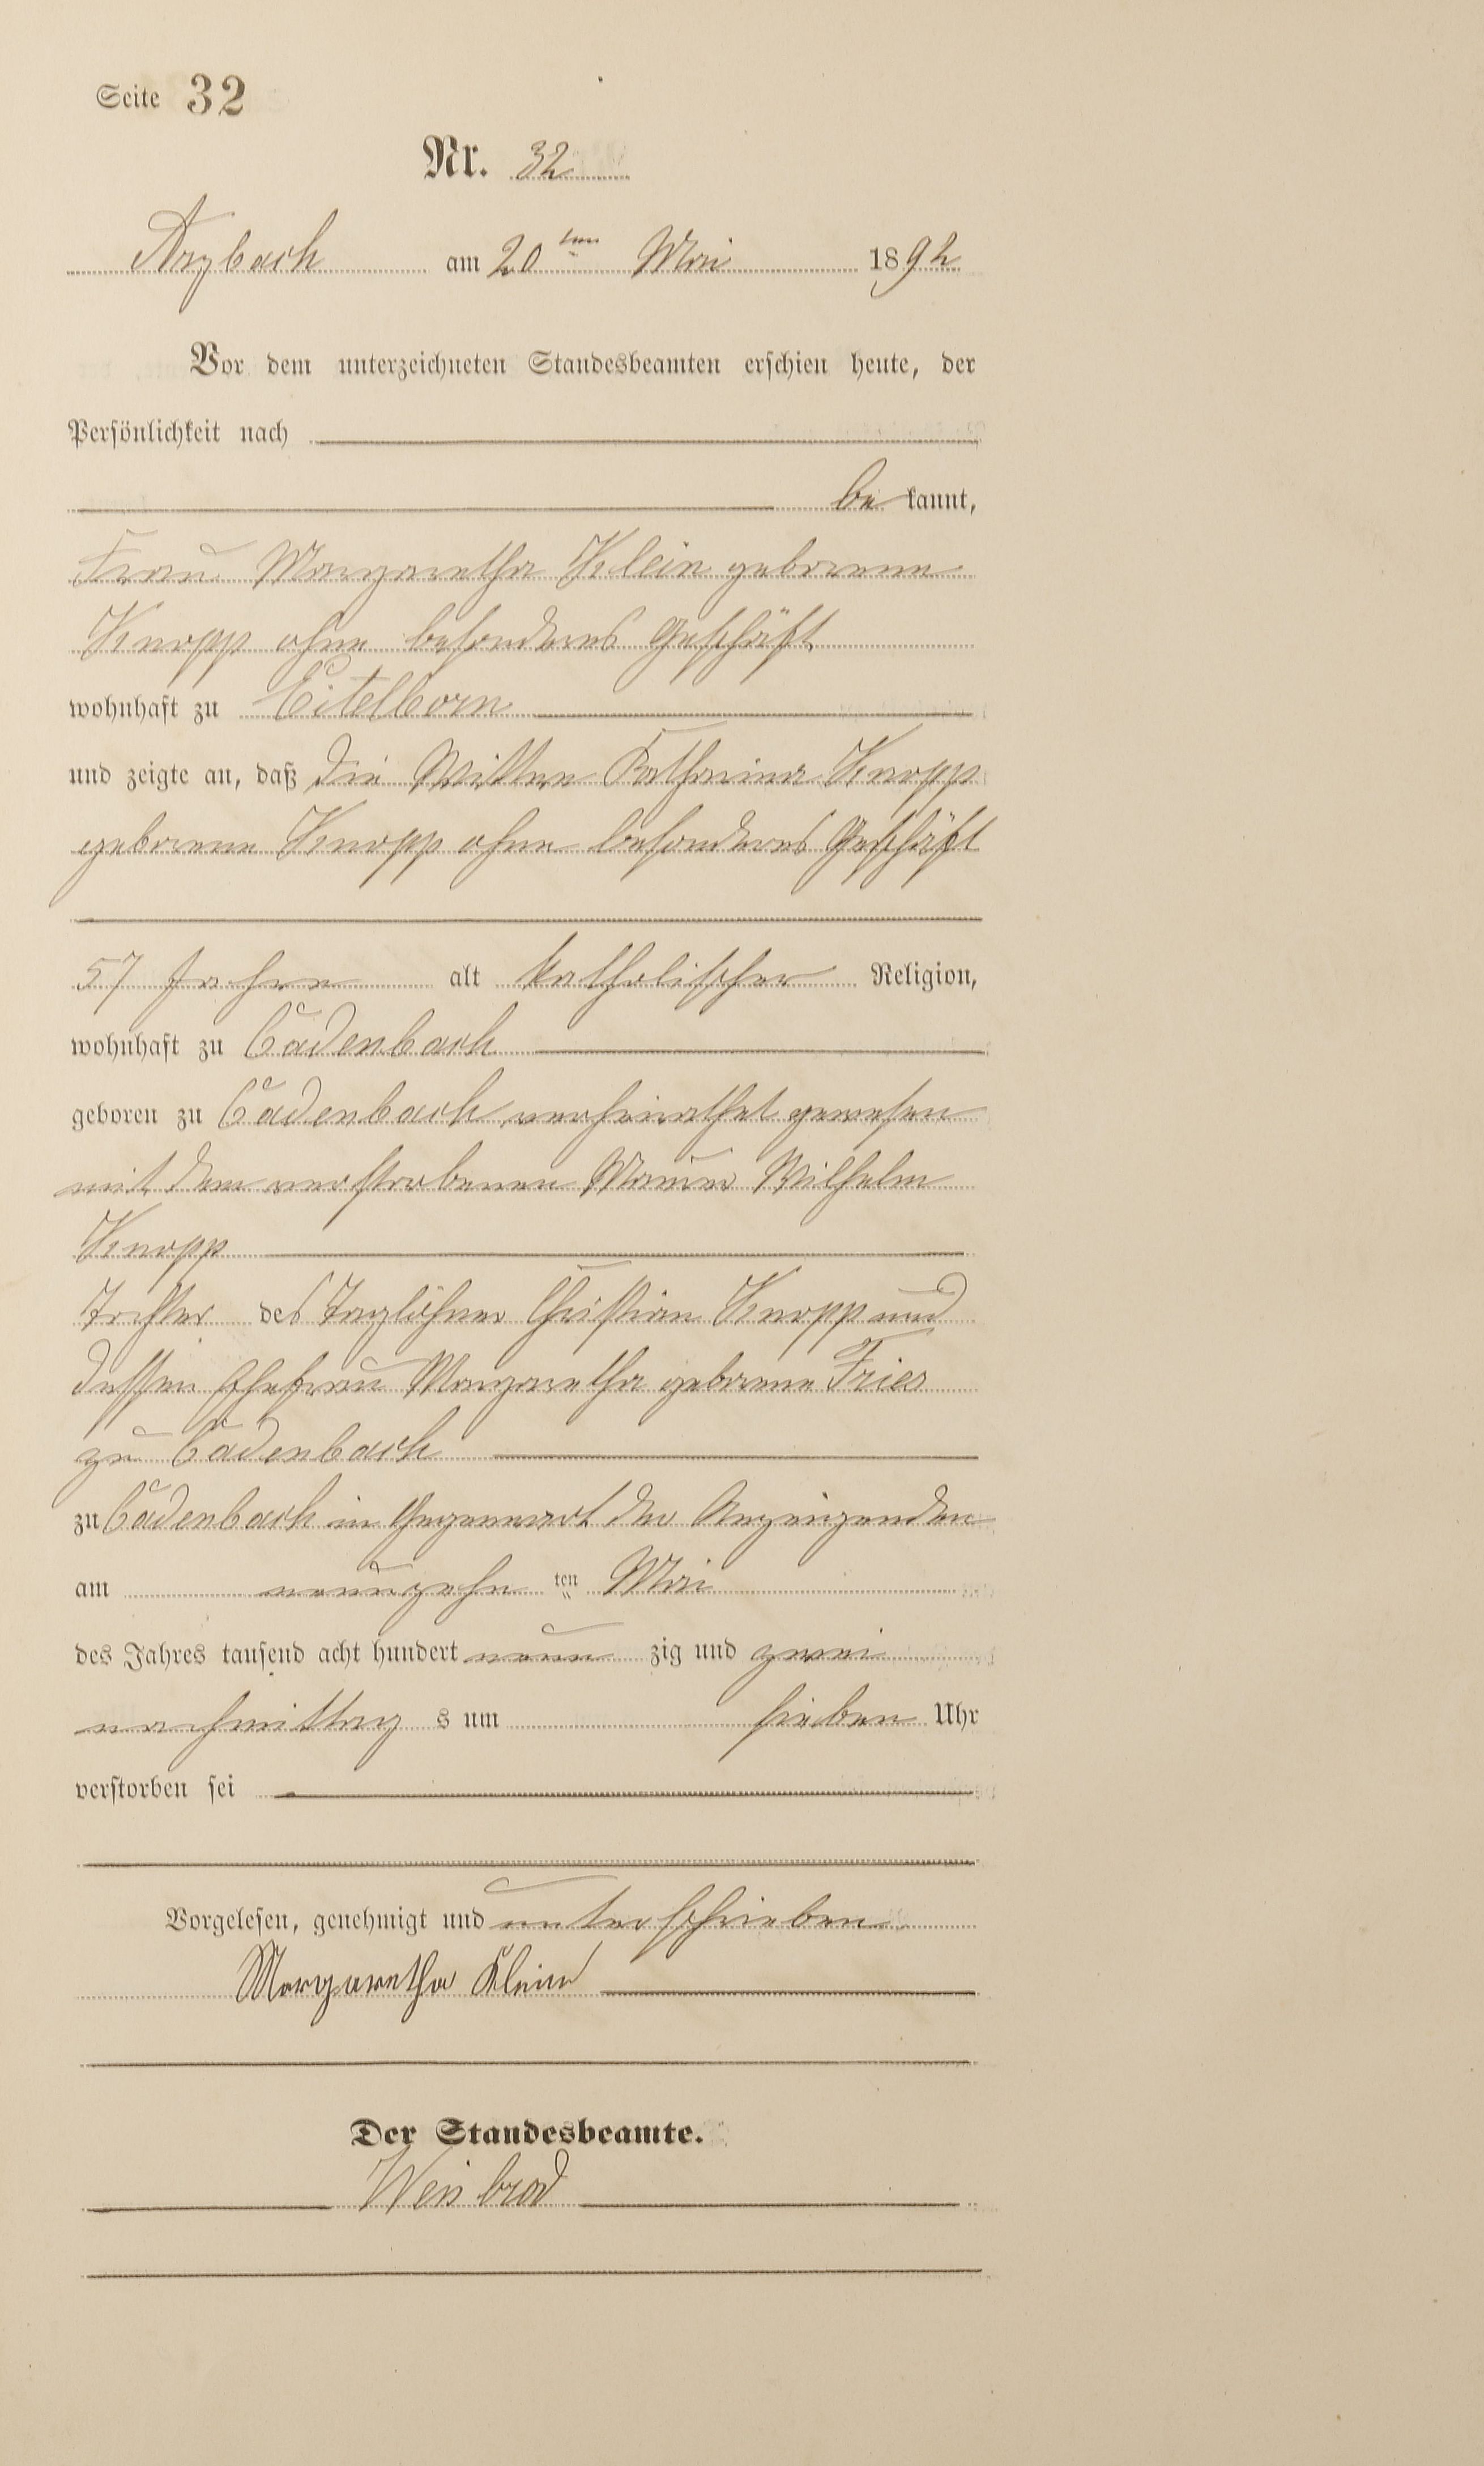 Seite 32
Nr. 32
Arzbach am 20ten Mai 1892
Vor dem unterzeichneten Standesbeamten erschien heute, der
Persönlichkeit nach
be kannt,
Frau Margaretha Klein geborene
Knopp ohne besonderes Geschäft
wohnhaft zu Eitelborn
und zeigte an, daß die Wittwe Katharina Knopp
geborene Knopp ohne besonderes Geschäft
57 Jahre alt katholischer Religion,
wohnhaft zu Cadenbach
geboren zu Cadenbach verheirathet gewesen
mit dem verstorbenen Maurer Wilhelm
Knopp
Tochter des Taglöhner Christian Knopp und
dessen Ehefrau Margaretha geborene Fries
zu Cadenbach
zu Cadenbach in Gegenwart der Anzeigenden
am neunzehn ten Mai
des Jahres tausend acht hundert neun zig und zwei
nachmittag s um sieben Uhr
verstorben sei
Vorgelesen, genehmigt und unterschrieben
Margaretha Klein
Der Standesbeamte.
Weisbrod